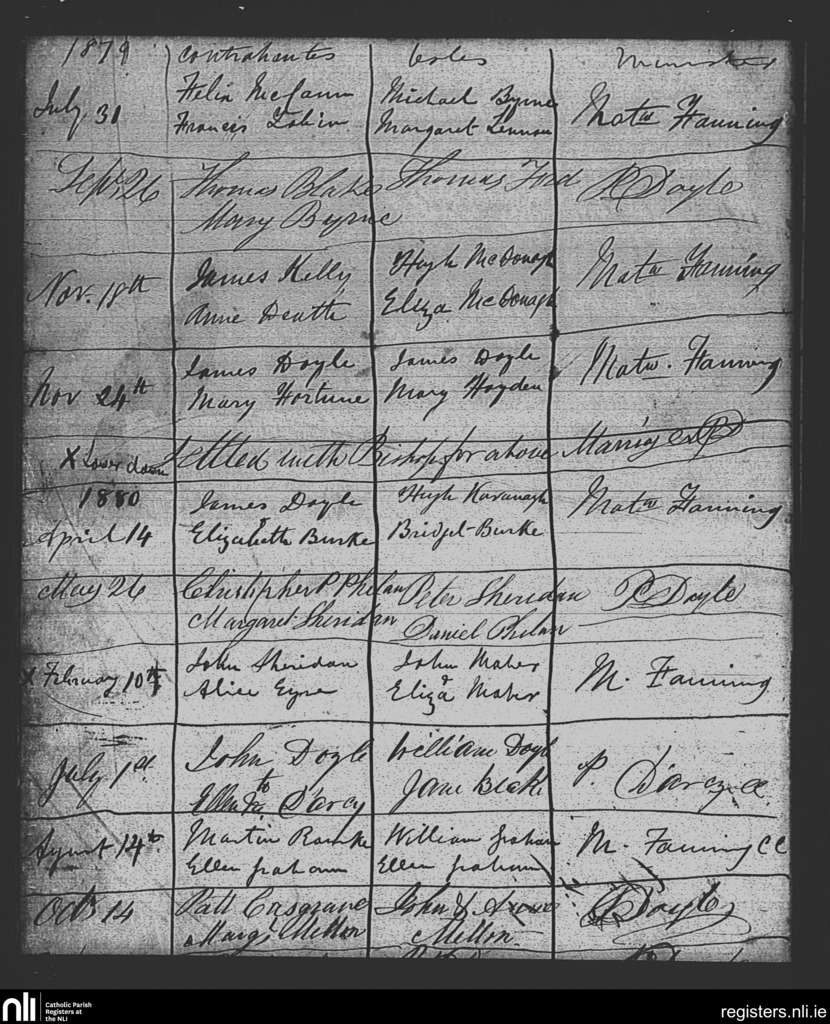 1879 contrahentes Testes Minister
July 31 Felix McCann Michael Byrne Matw Fanning
Francis Tobin Margaret Lennon
Sept. 26 Thomas Blake Thomas Ford P Doyle
Mary Byrne
Nov. 18th James Kelly Hugh McDonagh Matw Fanning
Anne Death Eliza McDonagh
Nov 24th James Doyle James Doyle Matw. Fanning
Mary Fortune Mary Hayden
X Lower down Settled with Bishop for above Marriages PD
1880 James Doyle Hugh Kavanagh Matw Fanning
April 14 Elizabeth Burke Bridget Burke
May 26 Christopher P Phelan Peter Sheridan P Doyle
Margaret Sheridan Daniel Phelan
X February 10th John Sheridan John Maher M. Fanning
Alice Eyre & Eliza Maher
July 1st John Doyle William Doyle P. Darcy
to Ellen D'arcy Jane Blake
August 14th Martin Rourke William Graham M. Fanning CC
Ellen Graham Ellen Graham
Octb 14 Patt Cosgrave John & P Doyle
Margt Mellon Mellon
nli Catholic Parish
Registers at
the NLI
registers.nli.ie